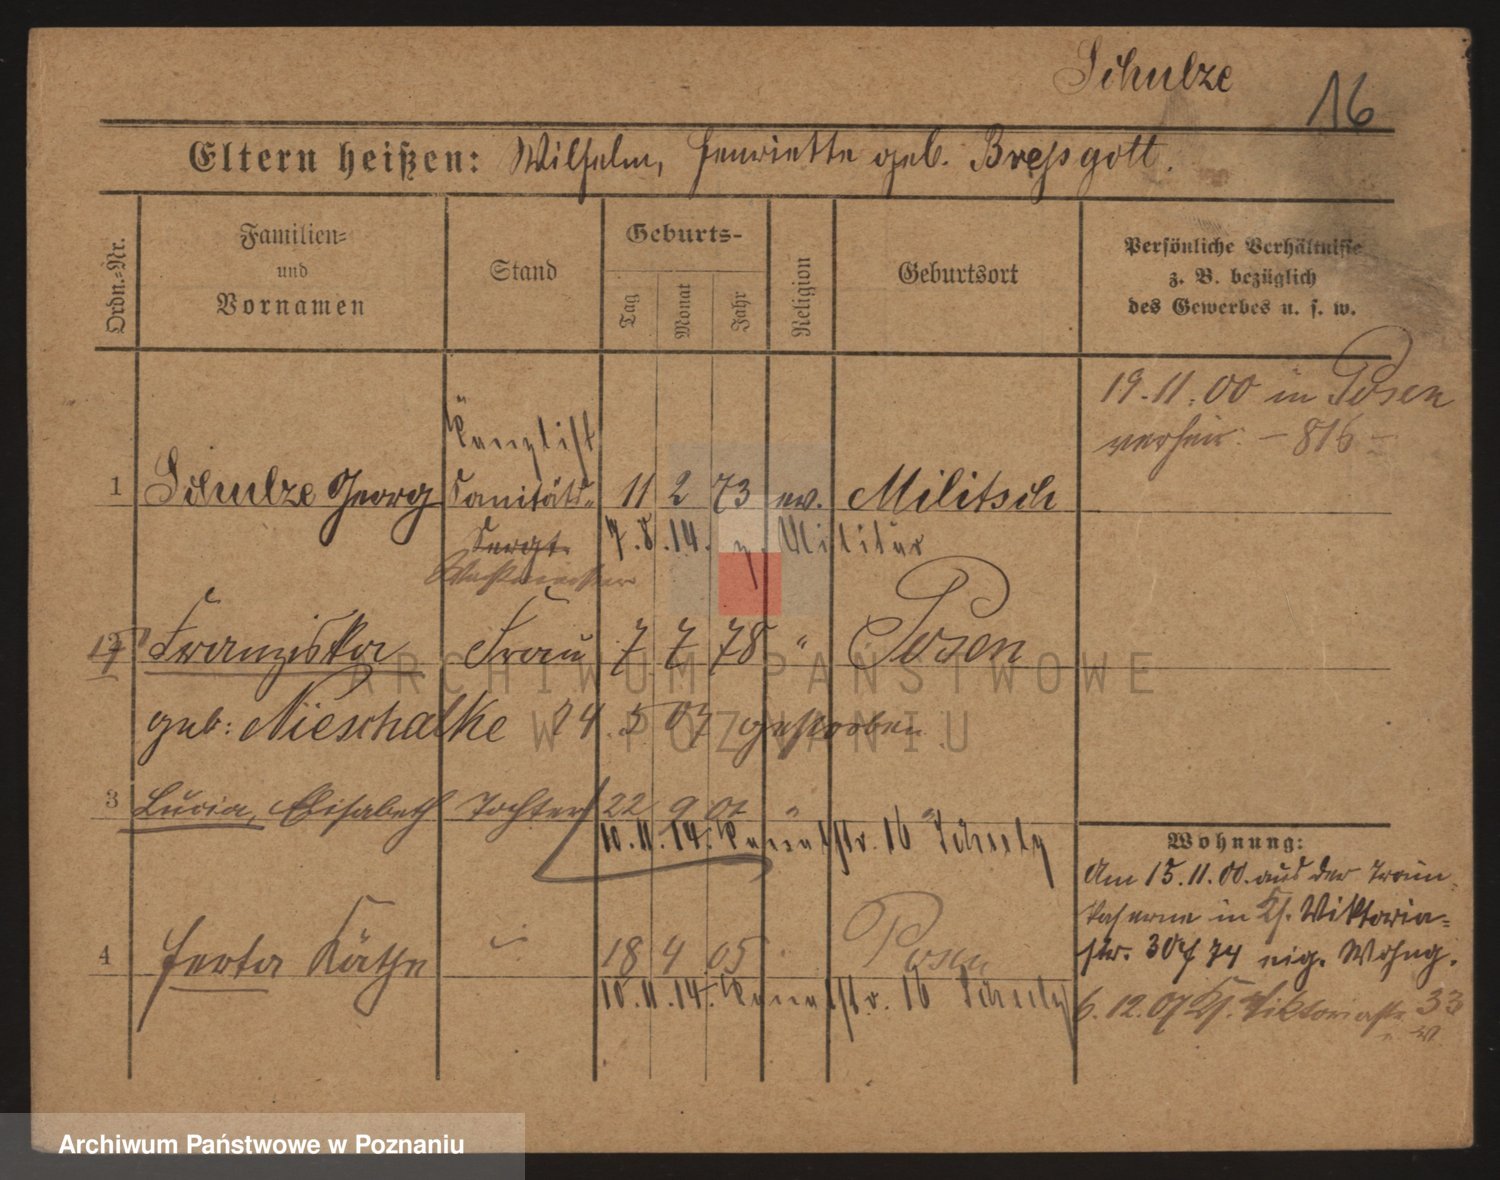 Schulze
16
Eltern heißen: Wilhelm, Henriette geb. Breßgott.
Ordn.-Nr.
Familien-
und
Vornamen
Stand
Geburts-
Tag
Monat
Jahr
Religion
Geburtsort
Persönliche Verhältnisse
z. B. bezüglich
des Gewerbes u. s. w.
19.11.00 in Posen
verheir. - 816 -
Kanzlist
1 Schulze Georg Sanitäts- 11 2 73 ev. Militsch
Sergt. 7.8.14. z. Militär
Franziska Frau 7 7 78 " Posen
geb: Nieschalke 24. 5 07 gestorben
3 Lucia, Elisabeth Tochter 22 9 01 " "
10.11.14. Kanalstr. 16
4 Herta Käthe " 18 4 05 Posen
10.11.14. Kanalstr. 16
Wohnung:
Am 15.11.00. aus der Train-
kaserne in Kl. Viktoria-
str. 30/74 eig. Wohng.
6.12.07 Kl. Viktoriastr. 33
ARCHIWUM PAŃSTWOWE
W POZNANIU
Archiwum Państwowe w Poznaniu